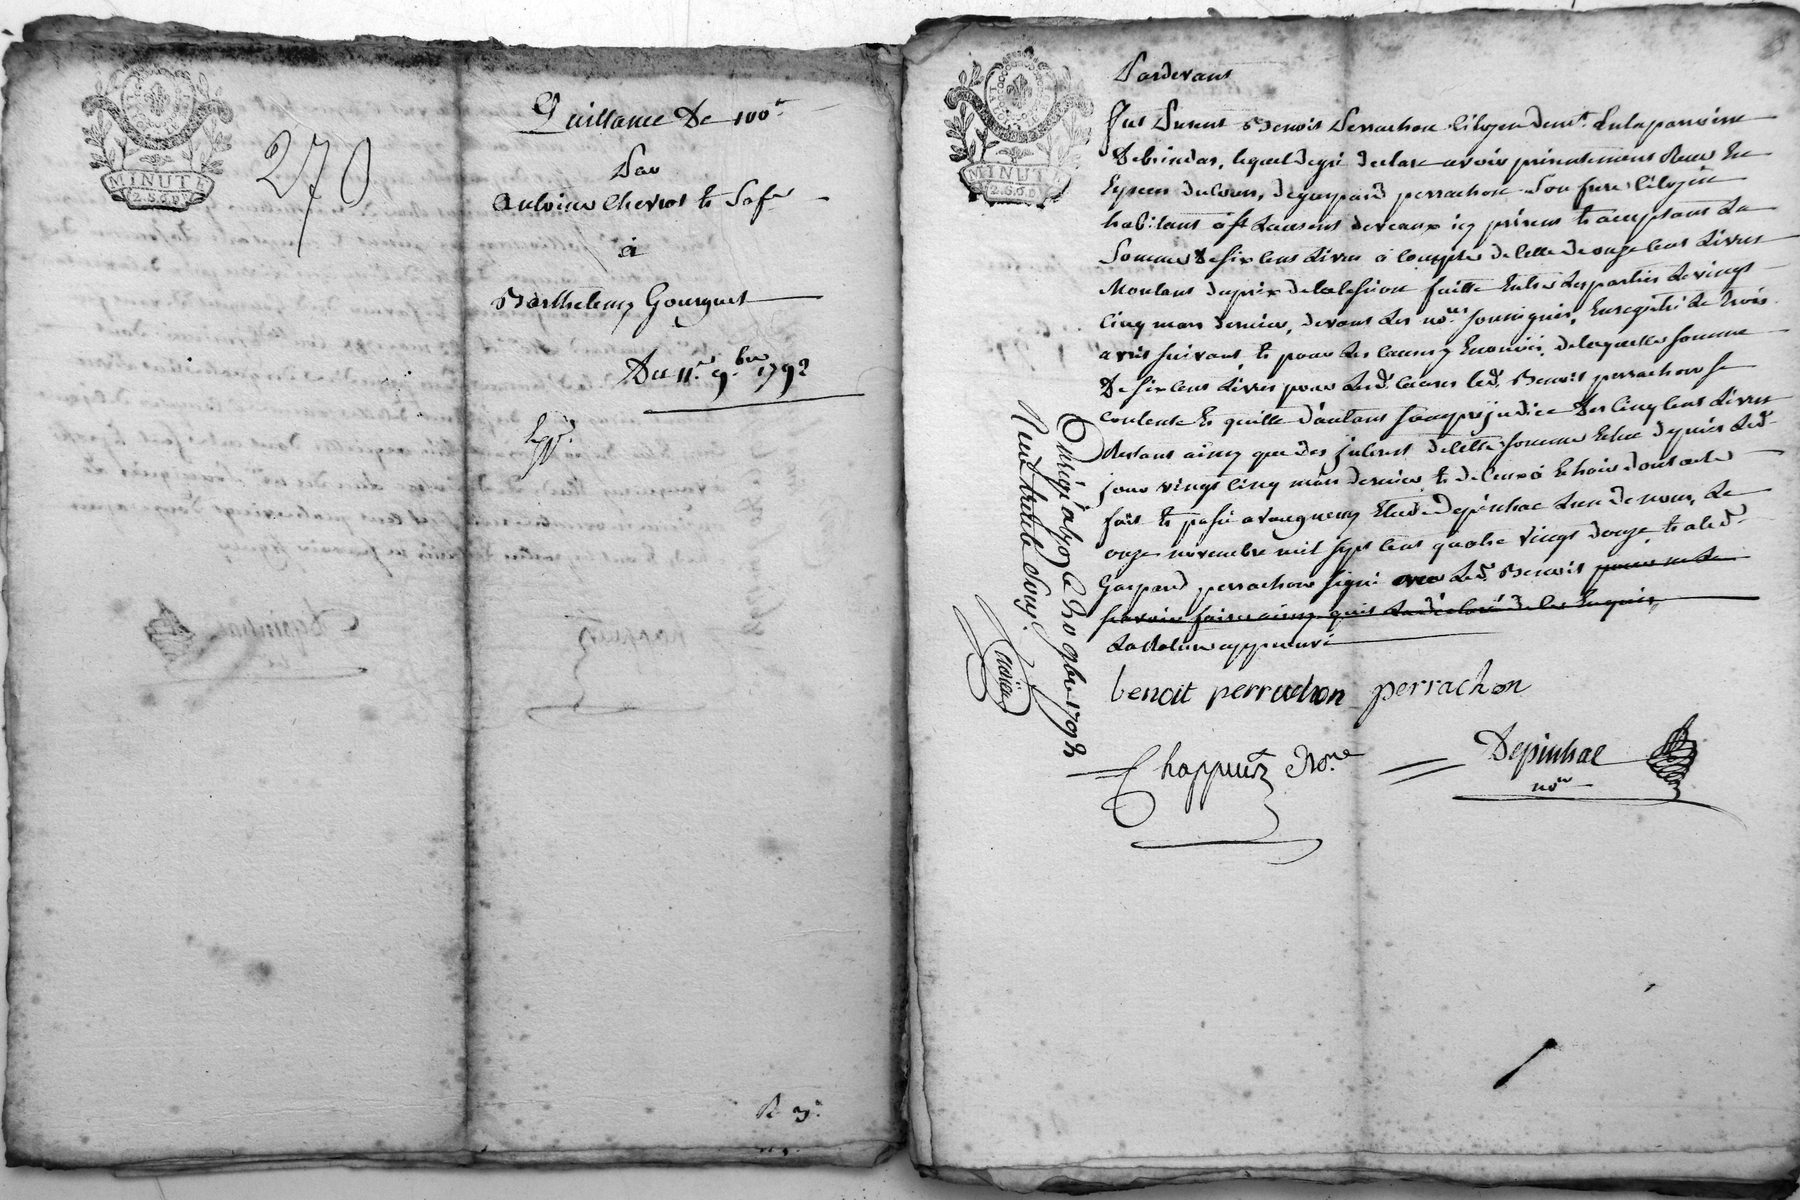 MINUTE
2.S.6.D
270
Quittance De 100tt
Par
Antoine Chevrot &
à
Barthelemy Gourguet
Du 11e 9bre 1792
Exp.
R
MINUTE
2.S.6.D
Pardevant
Fut Present Benoit Perrachon Citoyen demt. En la parroisse
De brindas, lequel de gré declare avoir presentement Reçu En
Especes du Cours, de gaspard perrachon son frere Citoyen
habitant à st Laurent de veaux icy present & acceptant La
Somme de six Cent Livres à Compte de Celle de onze Cent Livres
Montant du prix de la Cession faitte Entre Les parties Le vingt
Cinq mars dernier, devant Les nores soussignés, Enregistré Le trois
avril suivant & pour Les causes y Enoncées, de laquelle somme
De six Cent Livres pour Lesd. causes led. Benoit perrachon se
Contente Et quitte d'autant sans prejudice Des Cinq Cent Livres
Restant ainsy que des interest de cette somme Echue depuis Led.
jour vingt Cinq mars dernier, & de Ceux à Echoir dont acte
fait & passé à vaugneray Etude Depinhac L'un de nous, Le
onze novembre mil sept Cent quatre vingt douze, & a led.
Gaspard perrachon signé avec Led. Benoit pour ne Le
scavoir faire ainsy qu'il L'a déclaré de ce Enquis
La Rature approuvé
benoit perrachon perrachon
Chappuis Nore
Depinhac
nore
Enrégé à le 20 9bre 1792
Reçu trente sous